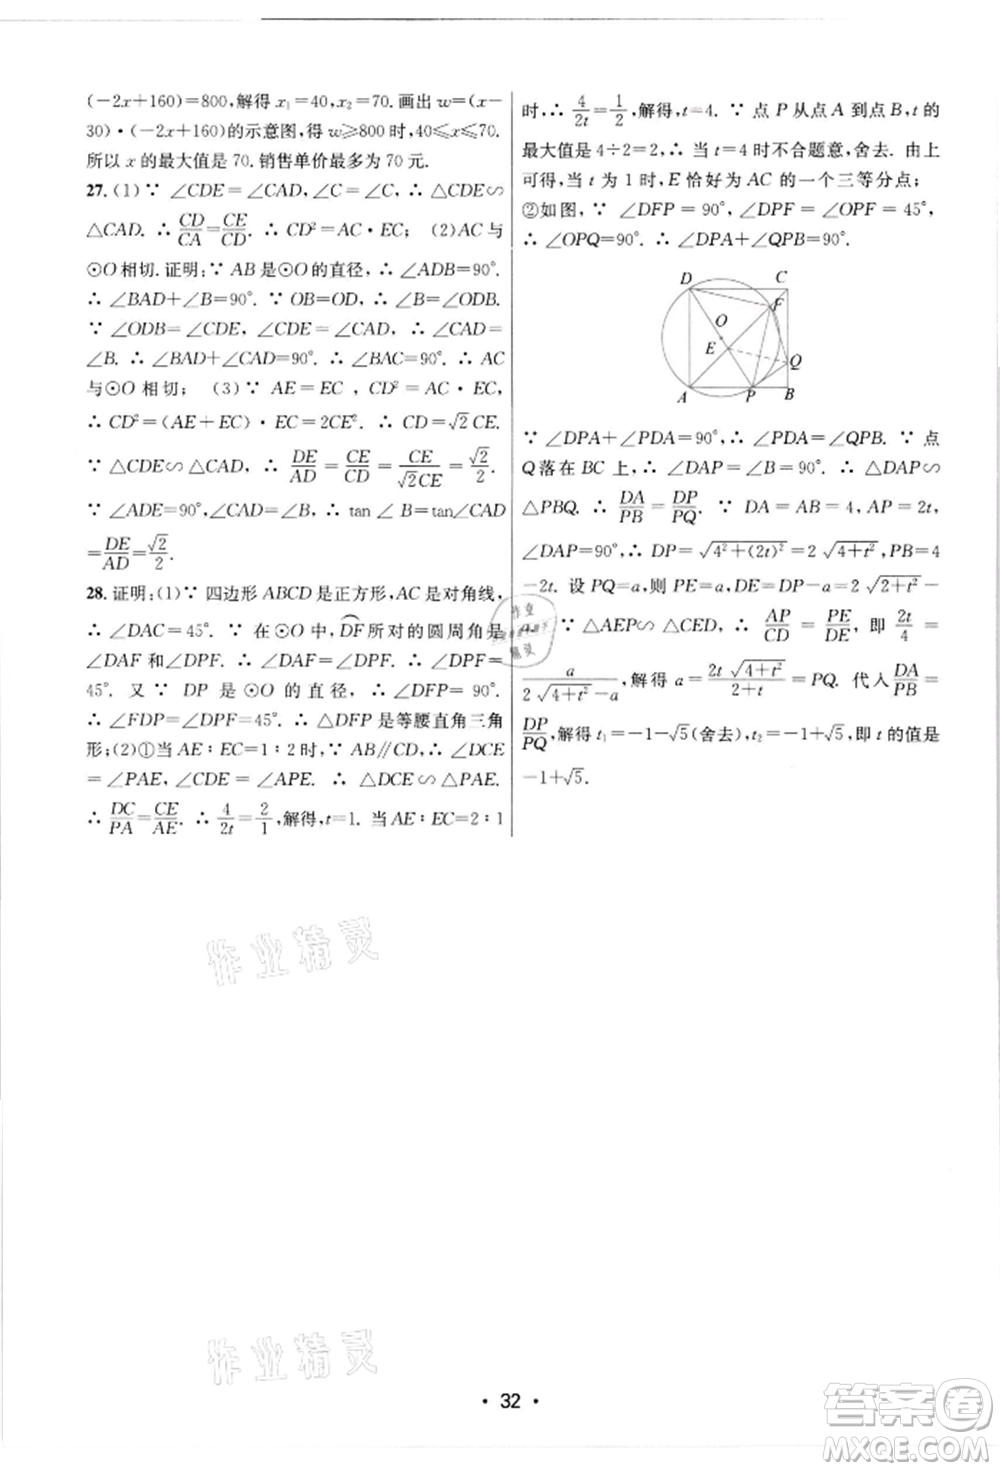 (－2x＋160)＝800,解得 x₁＝40,x₂＝70. 画出 w＝(x－
30)·(－2x＋160)的示意图,得 w≥800 时,40≤x≤70.
所以 x 的最大值是 70. 销售单价最多为 70 元.
27. (1) ∵ ∠CDE＝∠CAD,∠C＝∠C,∴ △CDE∽
△CAD. ∴ CD/CA＝CE/CD. ∴ CD²＝AC·EC; (2)AC 与
⊙O 相切. 证明:∵ AB 是⊙O 的直径,∴ ∠ADB＝90°.
∴ ∠BAD＋∠B＝90°. ∵ OB＝OD,∴ ∠B＝∠ODB.
∵ ∠ODB＝∠CDE,∠CDE＝∠CAD,∴ ∠B＝
∠CAD. ∴ ∠BAD＋∠CAD＝90°. ∴ ∠BAC＝90°. ∴ AC
与⊙O 相切; (3) ∵ AE＝EC , CD²＝AC·EC,
∴ CD²＝(AE＋EC)·EC＝2CE². ∴ CD＝√2CE.
∵ △CDE∽△CAD, ∴ DE/AD＝CE/CD＝CE/√2CE＝√2/2.
∵ ∠ADE＝90°,∠CAD＝∠B,∴ tan∠B＝tan∠CAD
＝DE/AD＝√2/2.
28. 证明:(1)∵ 四边形 ABCD 是正方形,AC 是对角线,
∴ ∠DAC＝45°. ∵ 在⊙O 中,DF所对的圆周角是
∠DAF 和∠DPF. ∴ ∠DAF＝∠DPF. ∴ ∠DPF＝
45°. 又 ∵ DP 是⊙O 的直径,∴ ∠DFP＝90°.
∴ ∠FDP＝∠DPF＝45°. ∴ △DFP 是等腰直角三角
形;(2)①当 AE∶EC＝1∶2时,∵ AB∥CD,∴ ∠DCE
＝∠PAE,∠CDE＝∠APE. ∴ △DCE∽△PAE.
∴ DC/PA＝CE/AE. ∴ 4/2t＝2/1,解得,t＝1. 当 AE∶EC＝2∶1
时,∴ 4/2t＝1/2,解得,t＝4. ∵ 点 P 从点 A 到点 B,t 的
最大值是 4÷2＝2,∴ 当 t＝4 时不合题意,舍去. 由上
可得,当 t 为 1 时,E 恰好为 AC 的一个三等分点;
②如图,∵ ∠DFP＝90°,∠DPF＝∠OPF＝45°,
∴ ∠OPQ＝90°. ∴ ∠DPA＋∠QPB＝90°.
D
C
F
O
E
Q
A
P
B
∵ ∠DPA＋∠PDA＝90°,∴ ∠PDA＝∠QPB. ∵ 点
Q落在 BC 上,∴ ∠DAP＝∠B＝90°. ∴ △DAP∽
△PBQ. ∴ DA/PB＝DP/PQ. ∵ DA＝AB＝4,AP＝2t,
∠DAP＝90°,∴ DP＝√4²＋(2t)²＝2√4＋t²,PB＝4
－2t. 设 PQ＝a,则 PE＝a,DE＝DP－a＝2√4＋t²－
∵ △AEP∽△CED,∴ AP/CD＝PE/DE, 即 2t/4＝
a/2√4＋t²－a,解得 a＝2t√4＋t²/2＋t＝PQ. 代入DA/PB＝
DP/PQ,解得 t₁＝－1－√5(舍去),t₂＝－1＋√5,即 t 的值是
－1＋√5.
作业
精灵
作业精灵
作业精灵
·32·
答案卷
MXQE.COM